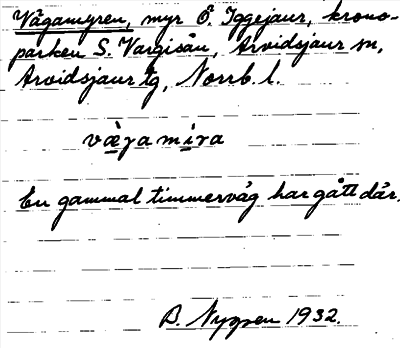 Vägamyren, myr Ö. Iggejaur, krono-
parken S. Vargisån, Arvidsjaur sn,
Arvidsjaur tg, Norrb. l.
væ̀gamìra
En gammal timmerväg har gått där.
B. Nygren 1932.